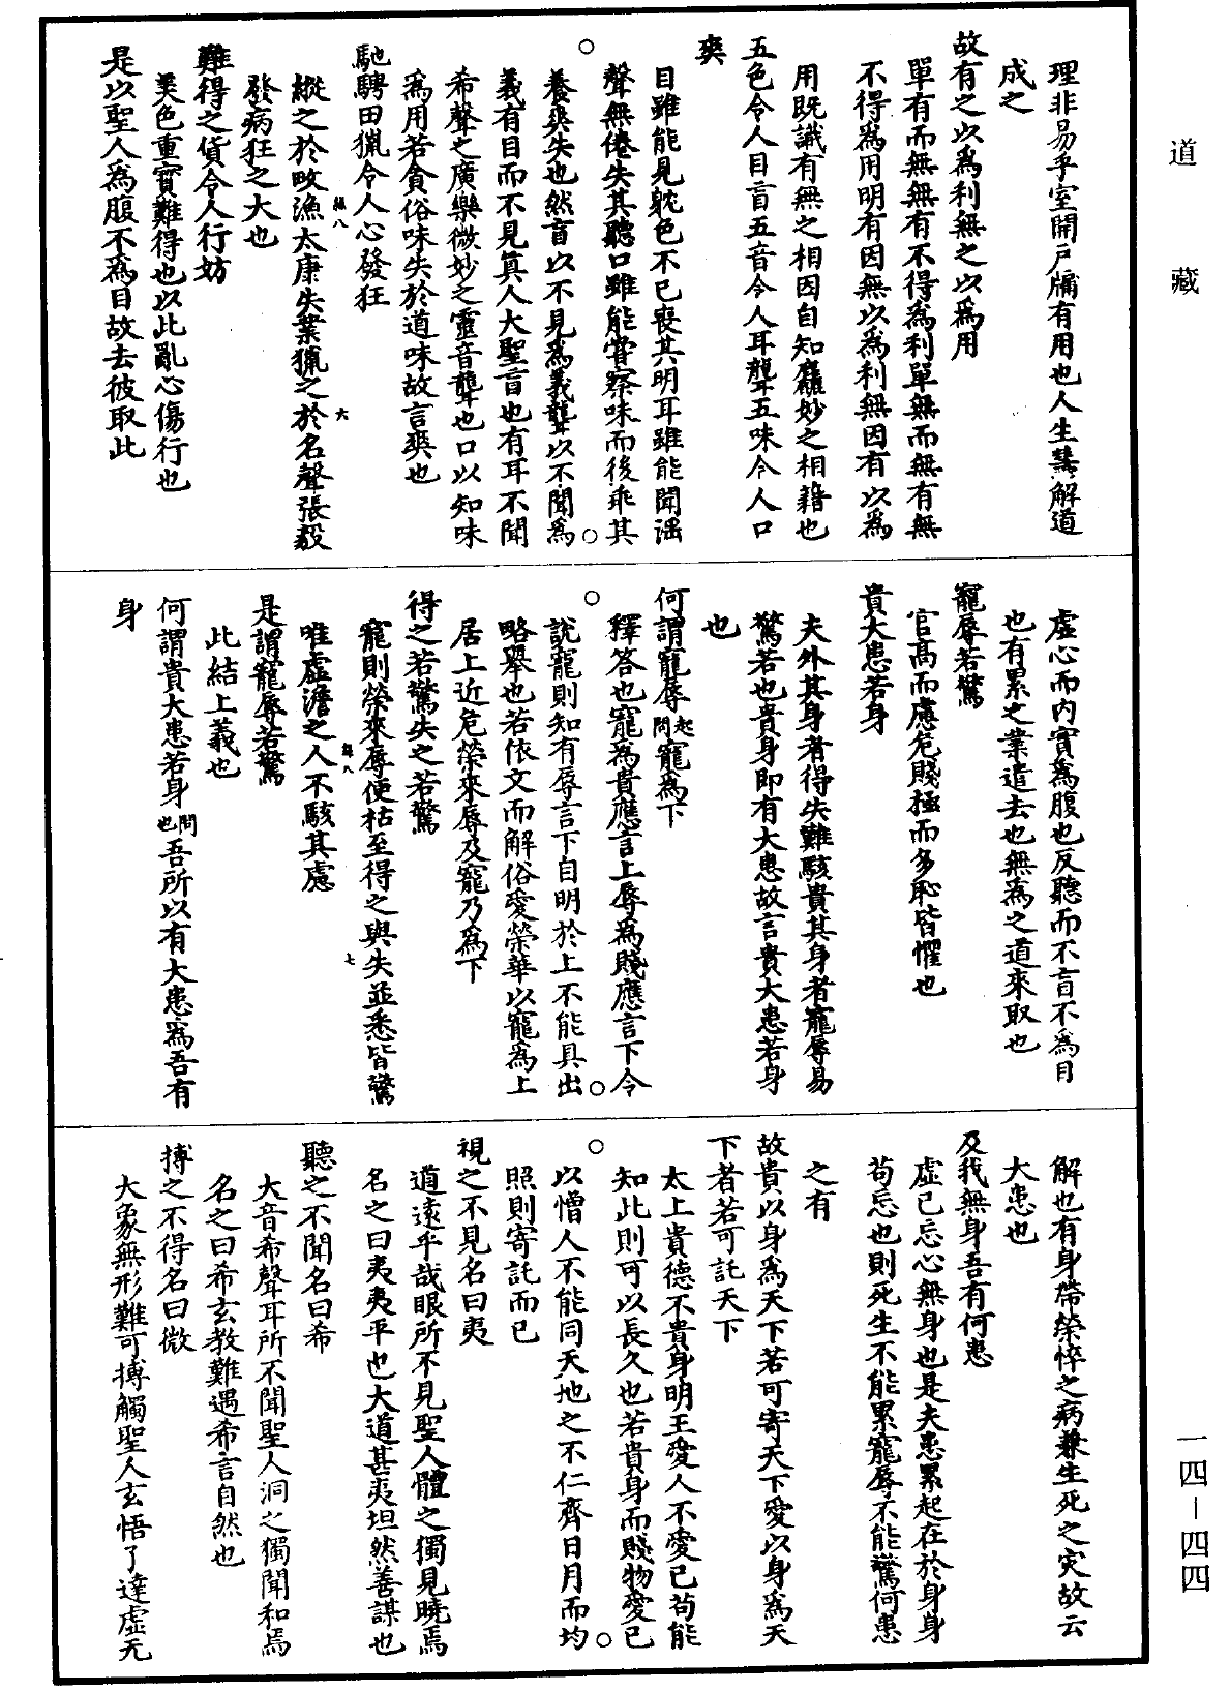 道藏
理非易乎室開戶牖有用也人生慧解道
成之
故有之以為利無之以為用
單有而無無有不得為利單無而無有無
不得為用明有因無以為利無因有以為
用既識有無之相因自知麤妙之相藉也
五色令人目盲五音令人耳聾五味令人口
爽
目雖能見躭色不已喪其明耳雖能聞滛
聲無倦失其聽口雖能嘗察味而後乖其
養爽失也然盲以不見為義聾以不聞為
義有目而不見真人大聖盲也有耳不聞
希聲之廣樂微妙之靈音聾也口以知味
為用若貪俗味失於道味故言爽也
馳騁田獵令人心發狂
六
縱之於畋漁太康失業獵之於名聲張毅
發病狂之大也
難得之貨令人行妨
美色重寶難得也以此亂心傷行也
是以聖人為腹不為目故去彼取此
虛心而內實為腹也反聽而不盲不為目
也有累之業遣去也無為之道來取也
寵辱若驚
官高而慮危賤極而多恥皆懼也
貴大患若身
夫外其身者得失難駭貴其身者寵辱易
驚若也貴身即有大患故言貴大患若身
也
何謂寵辱起問寵為下
釋答也寵為貴應言上辱為賤應言下今
說寵則知有辱言下自明於上不能具出
略舉也若依文而解俗愛榮華以寵為上
居上近危榮來辱及寵乃為下
得之若驚失之若驚
寵則榮來辱便枯至得之與失並悉皆驚
七
唯虛澹之人不駭其慮
是謂寵辱若驚
此結上義也
何謂貴大患若身問也吾所以有大患為吾有
身
解也有身帶榮悴之病兼生死之灾故云
大患也
及我無身吾有何患
虛己忘心無身也是夫患累起在於身身
苟忘也則死生不能累寵辱不能驚何患
之有
故貴以身為天下若可寄天下愛以身為天
下者若可託天下
太上貴德不貴身明王愛人不愛己苟能
知此則可以長久也若貴身而賤物愛己
以憎人不能同天地之不仁齊日月而均
照則寄託而已
視之不見名曰夷
道遠乎哉眼所不見聖人體之獨見曉焉
名之曰夷夷平也大道甚夷坦然善謀也
聽之不聞名曰希
大音希聲耳所不聞聖人洞之獨聞和焉
名之曰希玄教難遇希言自然也
搏之不得名曰微
大象無形難可搏觸聖人玄悟了達虛无
一四－四四